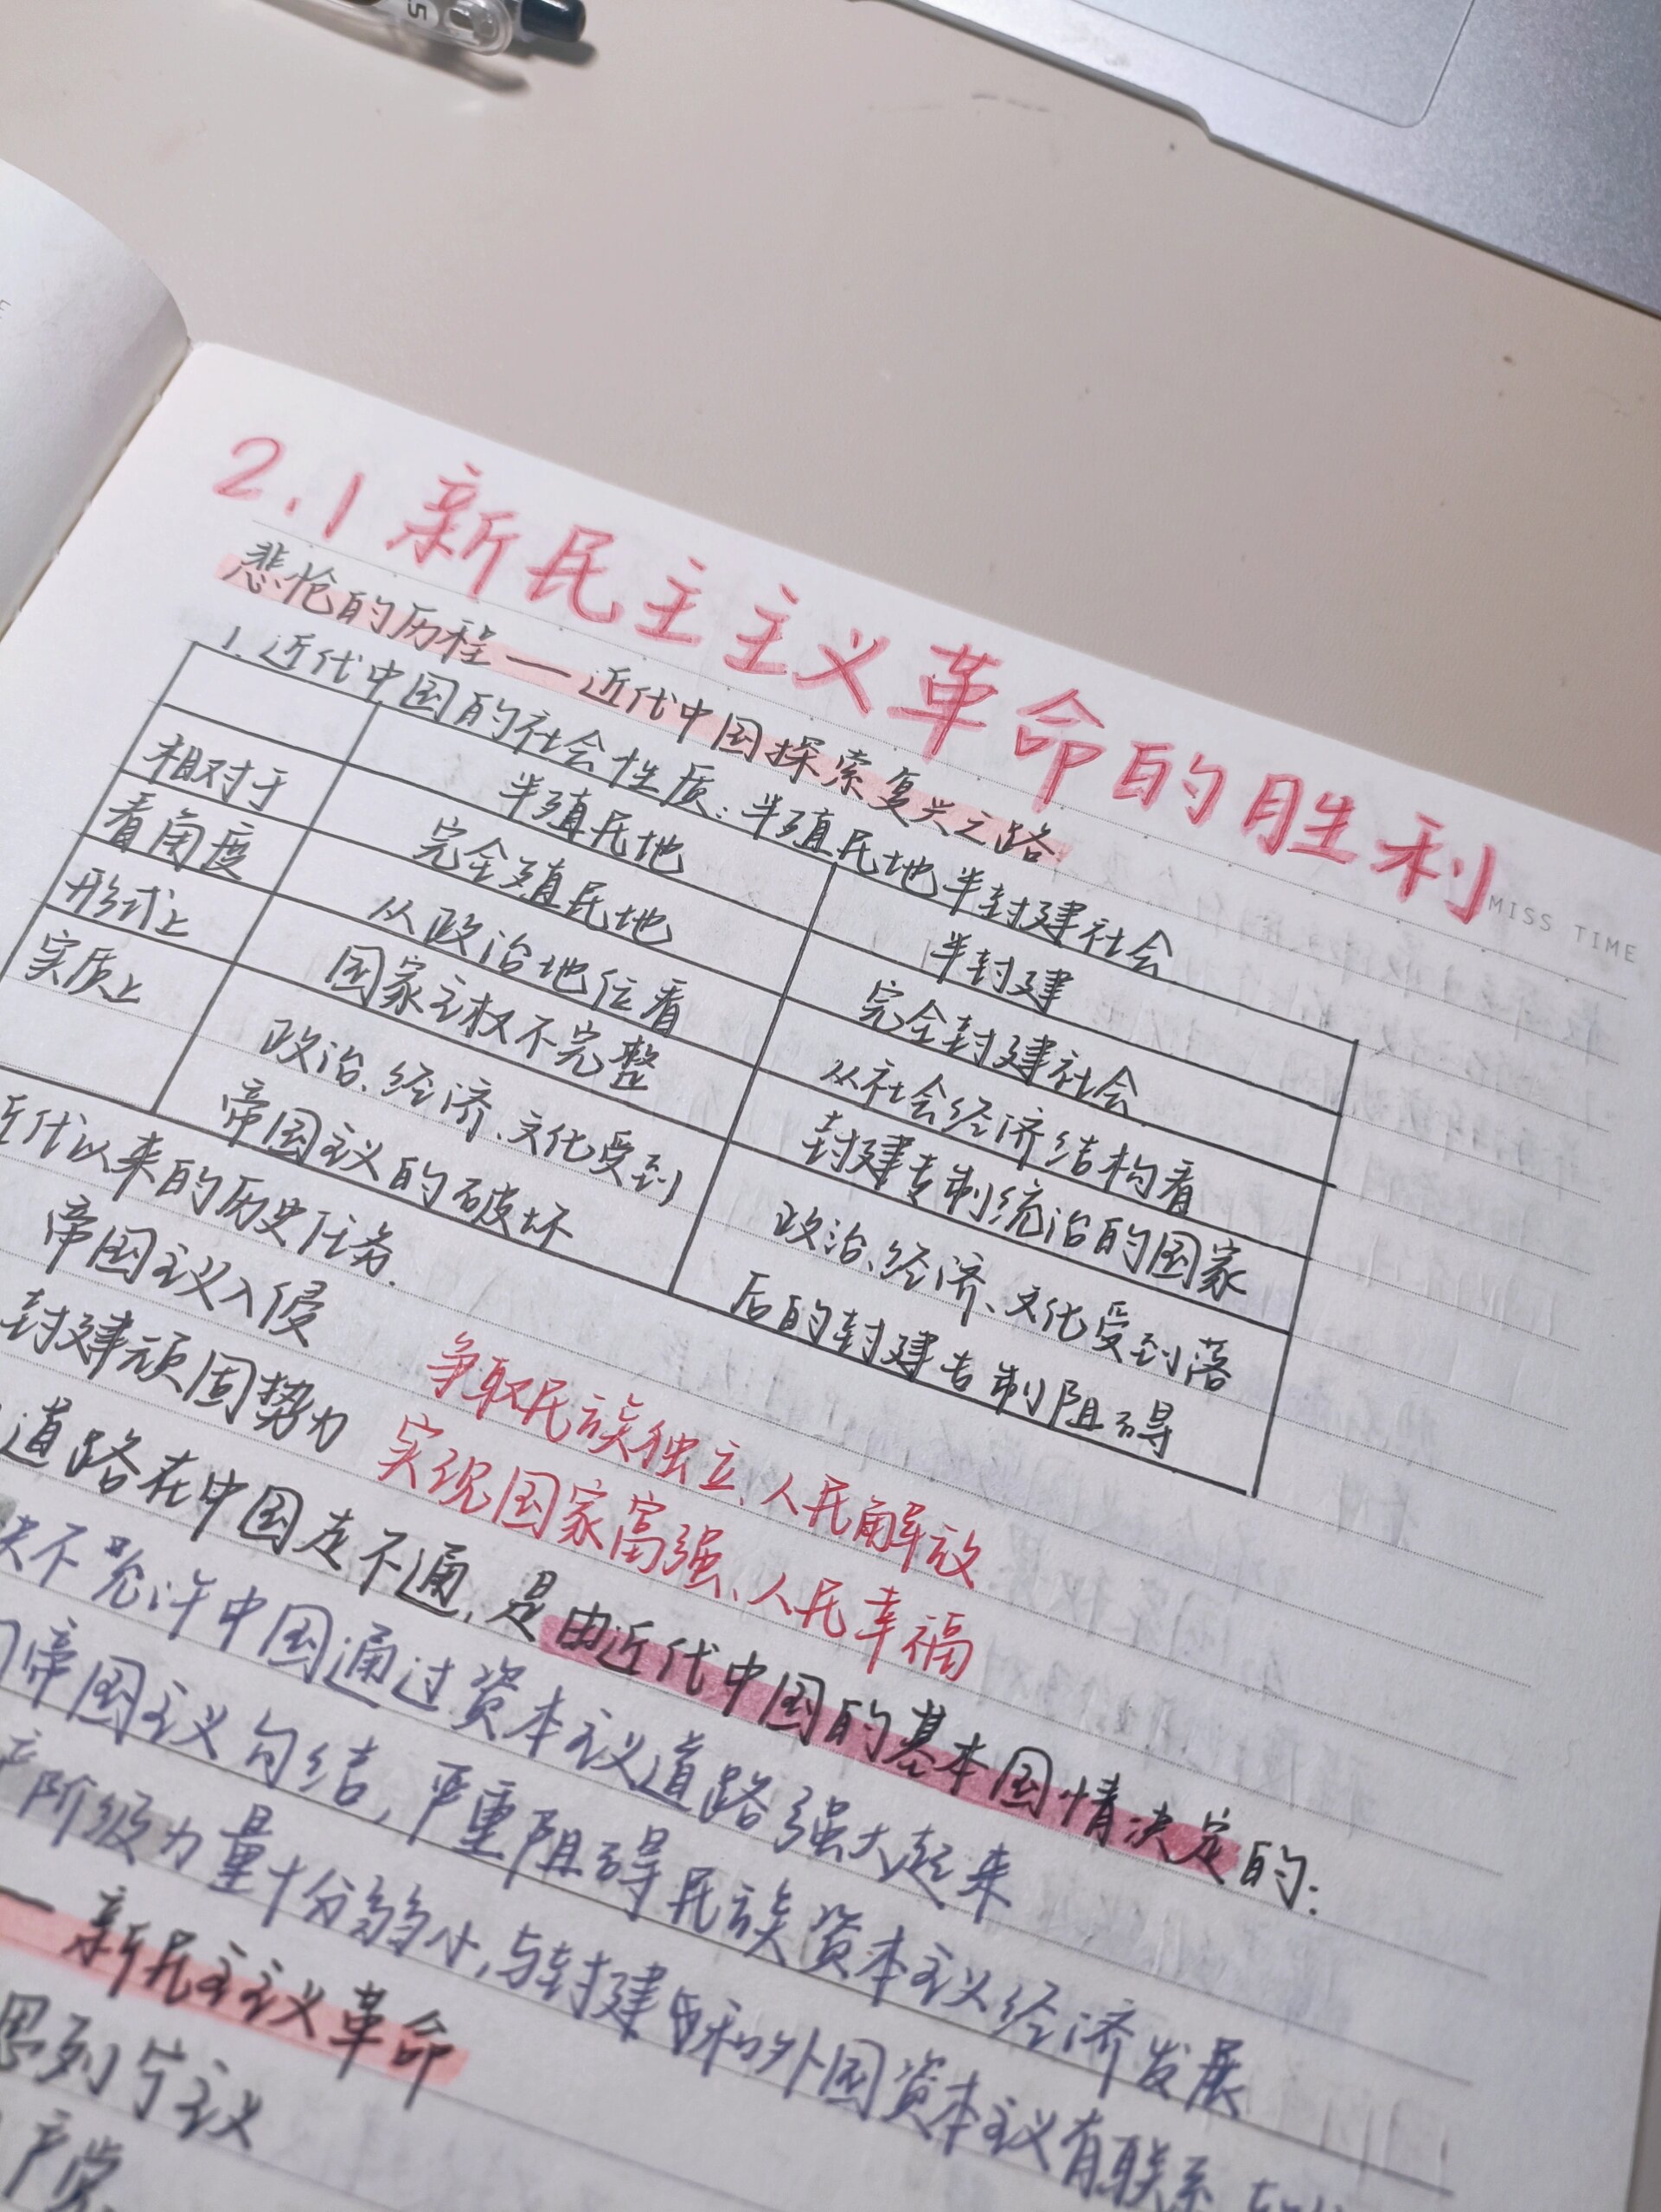 .5
2.1 新民主主义革命的胜利
MISS TIME
悲怆的历程—近代中国探索复兴之路
1.近代中国的社会性质:半殖民地半封建社会
半殖民地 半封建
相对于 完全殖民地 完全封建社会
看角度 从政治地位看 从社会经济结构看
形式上 国家主权不完整 封建专制统治的国家
实质上 政治、经济、文化受到帝国主义的破坏 政治、经济、文化受到落后的封建专制阻碍
近代以来的历史任务.
帝国主义入侵 争取民族独立、人民解放
封建顽固势力 实现国家富强、人民幸福
道路在中国走不通,是由近代中国的基本国情决定的:
决不允许中国通过资本主义道路强大起来
帝国主义勾结,严重阻碍民族资本主义经济发展
产阶级力量十分弱小,与封建和外国资本主义有联系
—新民主主义革命
思列宁主义
产党